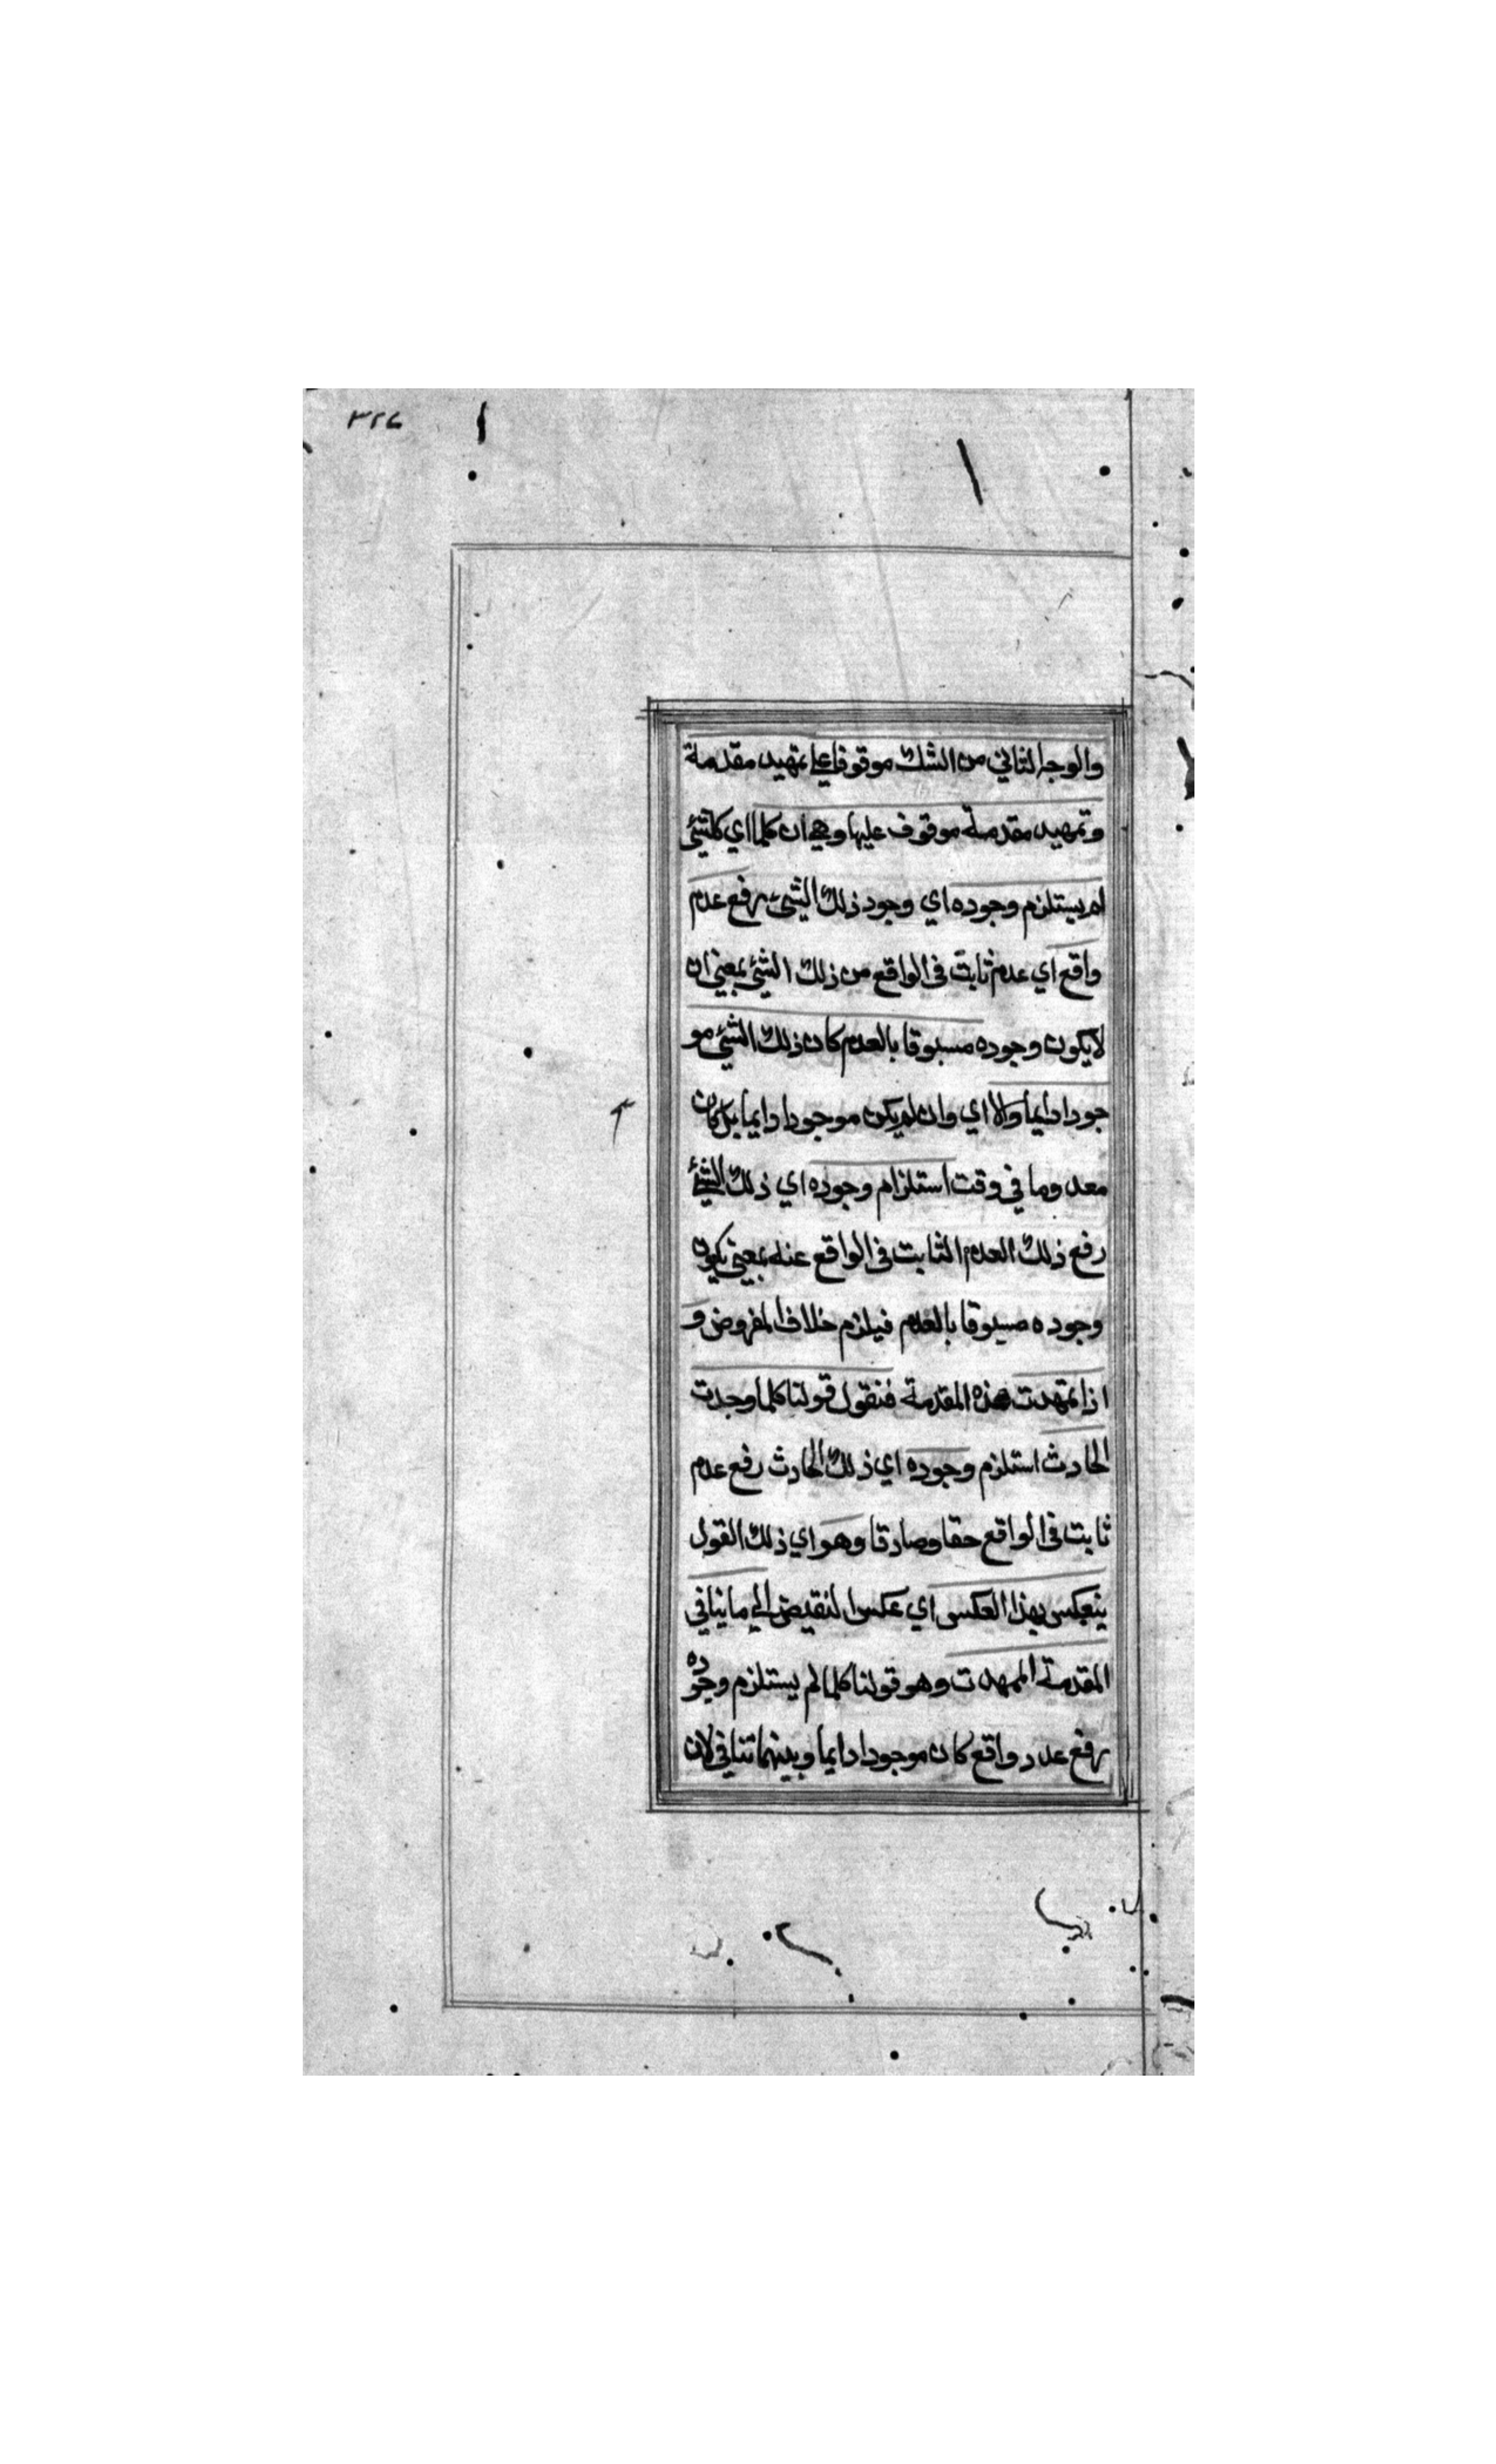 ٣٢٤
والوجه الثاني من الشك موقوفا علي تمهيد مقدمة
وتمهيد مقدمة موقوف عليها وهي ان كلما اي كلشئ
لم يستلزم وجوده اي وجود ذلك الشئ رفع عدم
واقع اي عدم ثابت في الواقع من ذلك الشئ بمعني ان
لا يكون وجوده مسبوقا بالعدم كان ذلك الشئ مو
جودا دايما والا اي وان لم يكن موجودا دايما بل كان
معدوما في وقت استلزام وجوده اي ذلك الشئ
رفع ذلك العدم الثابت في الواقع عنه بمعني يكون
وجوده مسبوقا بالعدم فيلزم خلاف المفروض و
اذا تمهدت هذه المقدمة فنقول قولنا كلما وجدت
الحادث استلزم وجوده اي ذلك الحادث رفع عدم
ثابت في الواقع حقا وصادقا وهو اي ذلك القول
ينعكس بهذا العكس اي عكس النقيض الي ما ينافي
المقدمة الممهدت وهو قولنا كلما لم يستلزم وجوده
رفع عدد واقع كان موجودا دايما وبينهما تنافي لان